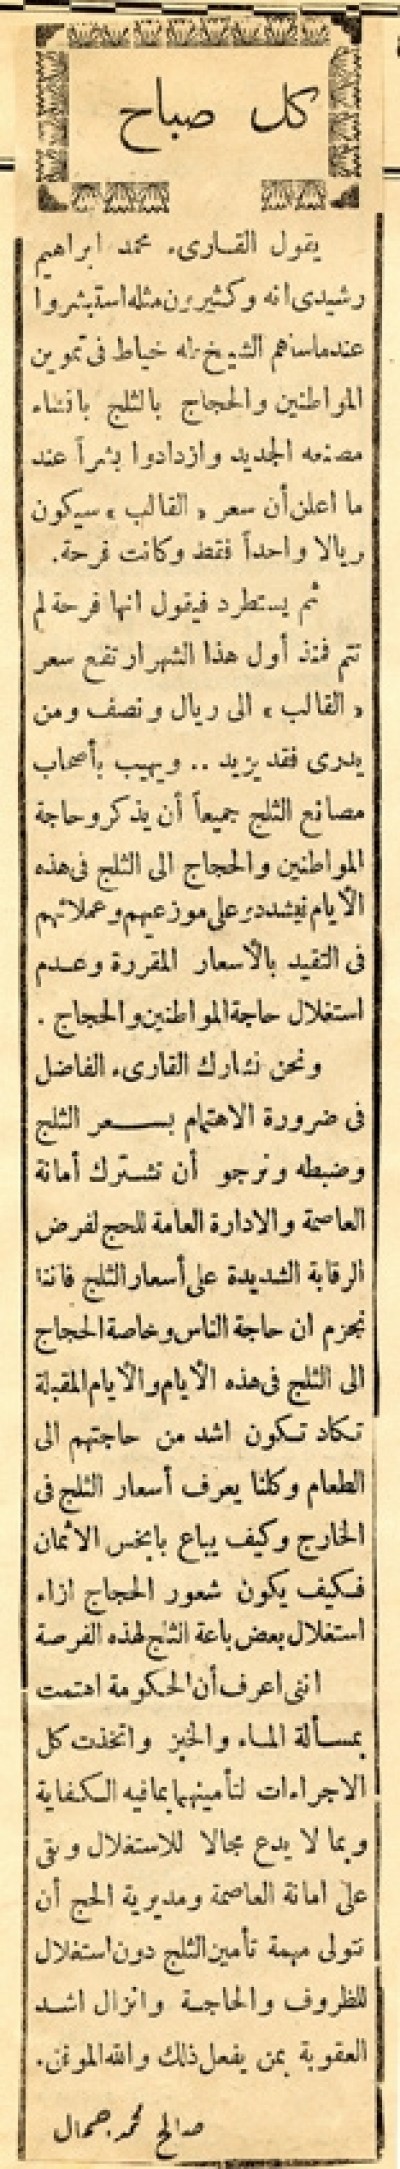 كل صباح
يقول القارىء محمد ابراهيم
رشيدى انه وكثيرين مثله استبشروا
عندما ساهم الشيخ طه خياط فى تموين
المواطنين والحجاج بالثلج بانشاء
مصنعه الجديد وازدادوا بشراً عند
ما اعلن أن سعر « القالب » سيكون
ريالا واحداً فقط وكانت فرحة.
ثم يستطرد فيقول انها فرحة لم
تتم فمنذ أول هذا الشهر ارتفع سعر
« القالب » الى ريال ونصف ومن
يدرى فقد يزيد .. ويهيب بأصحاب
مصانع الثلج جميعاً أن يذكروا حاجة
المواطنين والحجاج الى الثلج فى هذه
الأيام فيشددوا على موزعيهم وعملائهم
فى التقيد بالأسعار المقررة وعدم
استغلال حاجة المواطنين والحجاج .
ونحن نشارك القارىء الفاضل
فى ضرورة الاهتمام بسعر الثلج
وضبطه ونرجو أن تشترك أمانة
العاصمة والادارة العامة للحج لفرض
الرقابة الشديدة على أسعار الثلج فاننا
نجزم ان حاجة الناس وخاصة الحجاج
الى الثلج فى هذه الأيام والأيام المقبلة
تكاد تكون اشد من حاجتهم الى
الطعام وكلنا يعرف أسعار الثلج فى
الخارج وكيف يباع بابخس الاثمان
فكيف يكون شعور الحجاج ازاء
استغلال بعض باعة الثلج لهذه الفرصة
اننى اعرف أن الحكومة اهتمت
بمسألة الماء والخبز واتخذت كل
الاجراءات لتأمينهما بما فيه الكفاية
وبما لا يدع مجالا للاستغلال وبقى
على امانة العاصمة ومديرية الحج أن
تتولى مهمة تأمين الثلج دون استغلال
للظروف والحاجة وانزال اشد
العقوبة بمن يفعل ذلك والله الموفق.
صالح محمد جمال